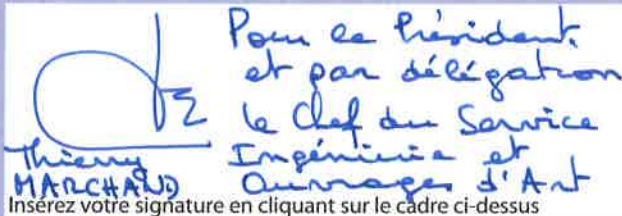 Pour le Président,
et par délégation
le Chef du Service
Ingénierie et
Ouvrages d'Art
Thierry
MARCHAND
Insérez votre signature en cliquant sur le cadre ci-dessus